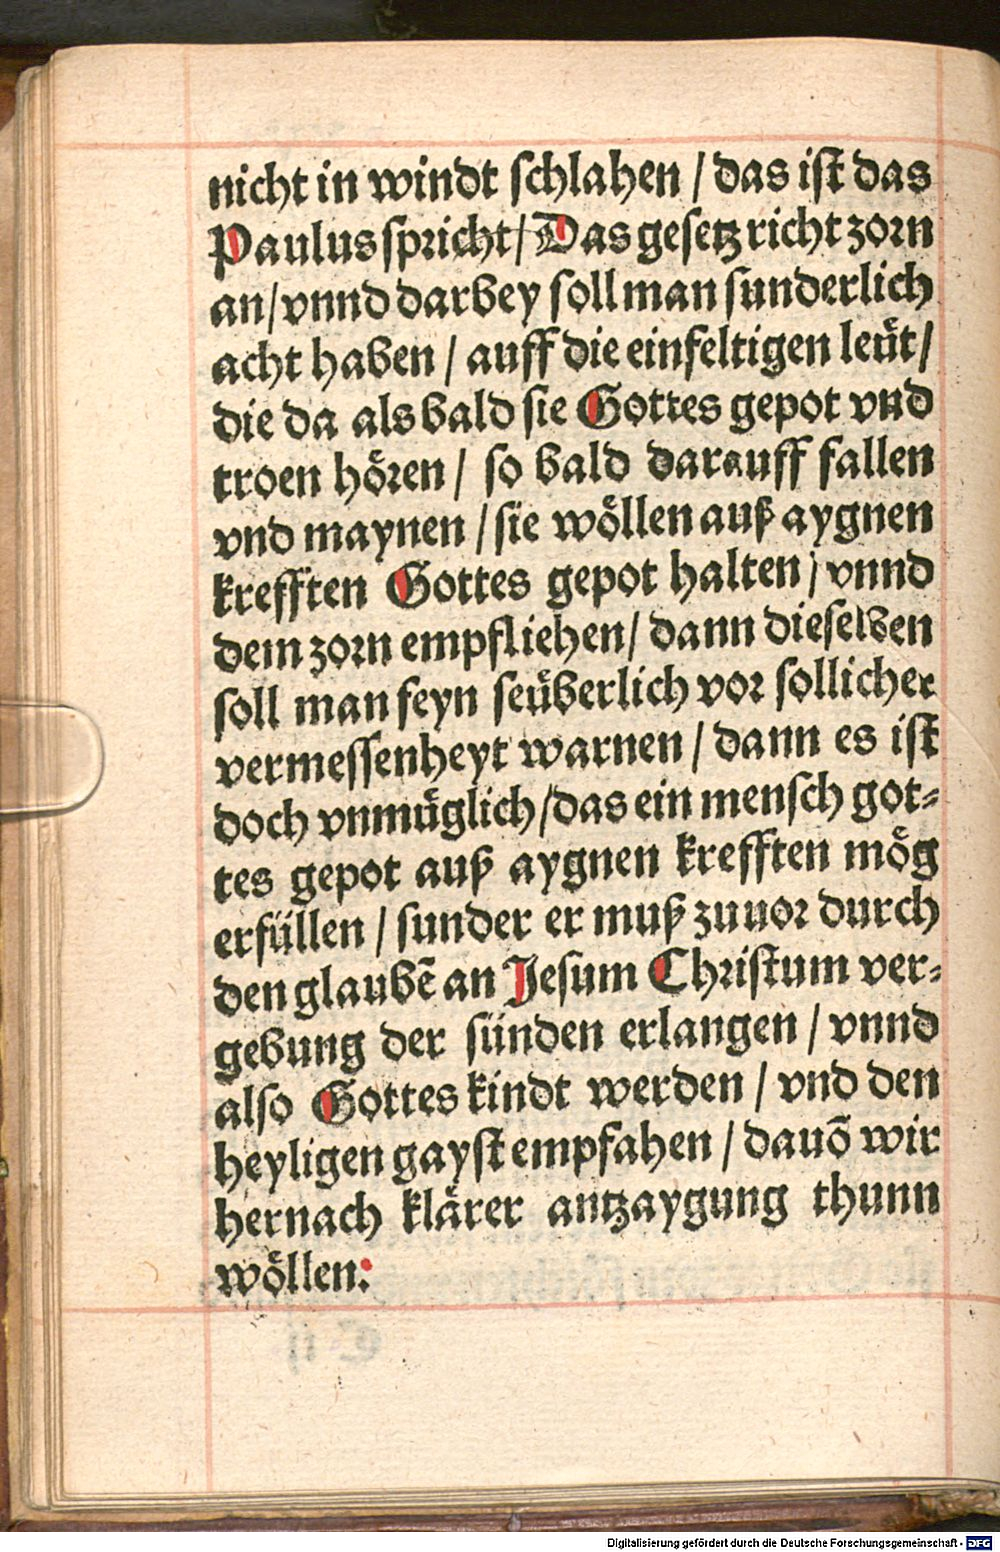 nicht in windt schlahen / das ist das
Paulus spricht / Das gesetz richt zorn
an / vnnd darbey soll man sunderlich
acht haben / auff die einfeltigen leüt /
die da als bald sie Gottes gepot vnd
troen hören / so bald darauff fallen
vnd maynen / sie wöllen auß aygnen
krefften Gottes gepot halten / vnnd
dem zorn empfliehen / dann dieselben
soll man feyn seüberlich vor sollicher
vermessenheyt warnen / dann es ist
doch vnmüglich / das ein mensch got⸗
tes gepot auß aygnen krefften mög
erfüllen / sunder er muß zuuor durch
den glaubē an Jesum Christum ver⸗
gebung der sünden erlangen / vnnd
also Gottes kindt werden / vnd den
heyligen gayst empfahen / dauō wir
hernach klärer antzaygung thunn
wöllen:
Digitalisierung gefördert durch die Deutsche Forschungsgemeinschaft - DFG